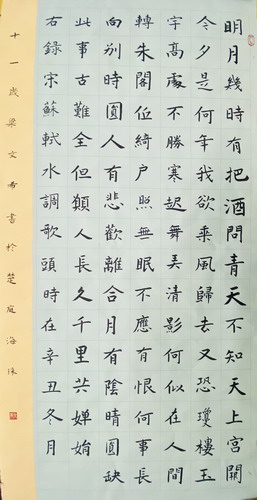 明月幾時有把酒問青天不知天上宮闕
今夕是何年我欲乘風歸去又恐瓊樓玉
宇高處不勝寒起舞弄清影何似在人間
轉朱閣低綺戶照無眠不應有恨何事長
向別時圓人有悲歡離合月有陰晴圓缺
此事古難全但願人長久千里共嬋娟
右錄宋蘇軾水調歌頭時在辛丑冬月
十一歲梁文希書於楚庭海珠